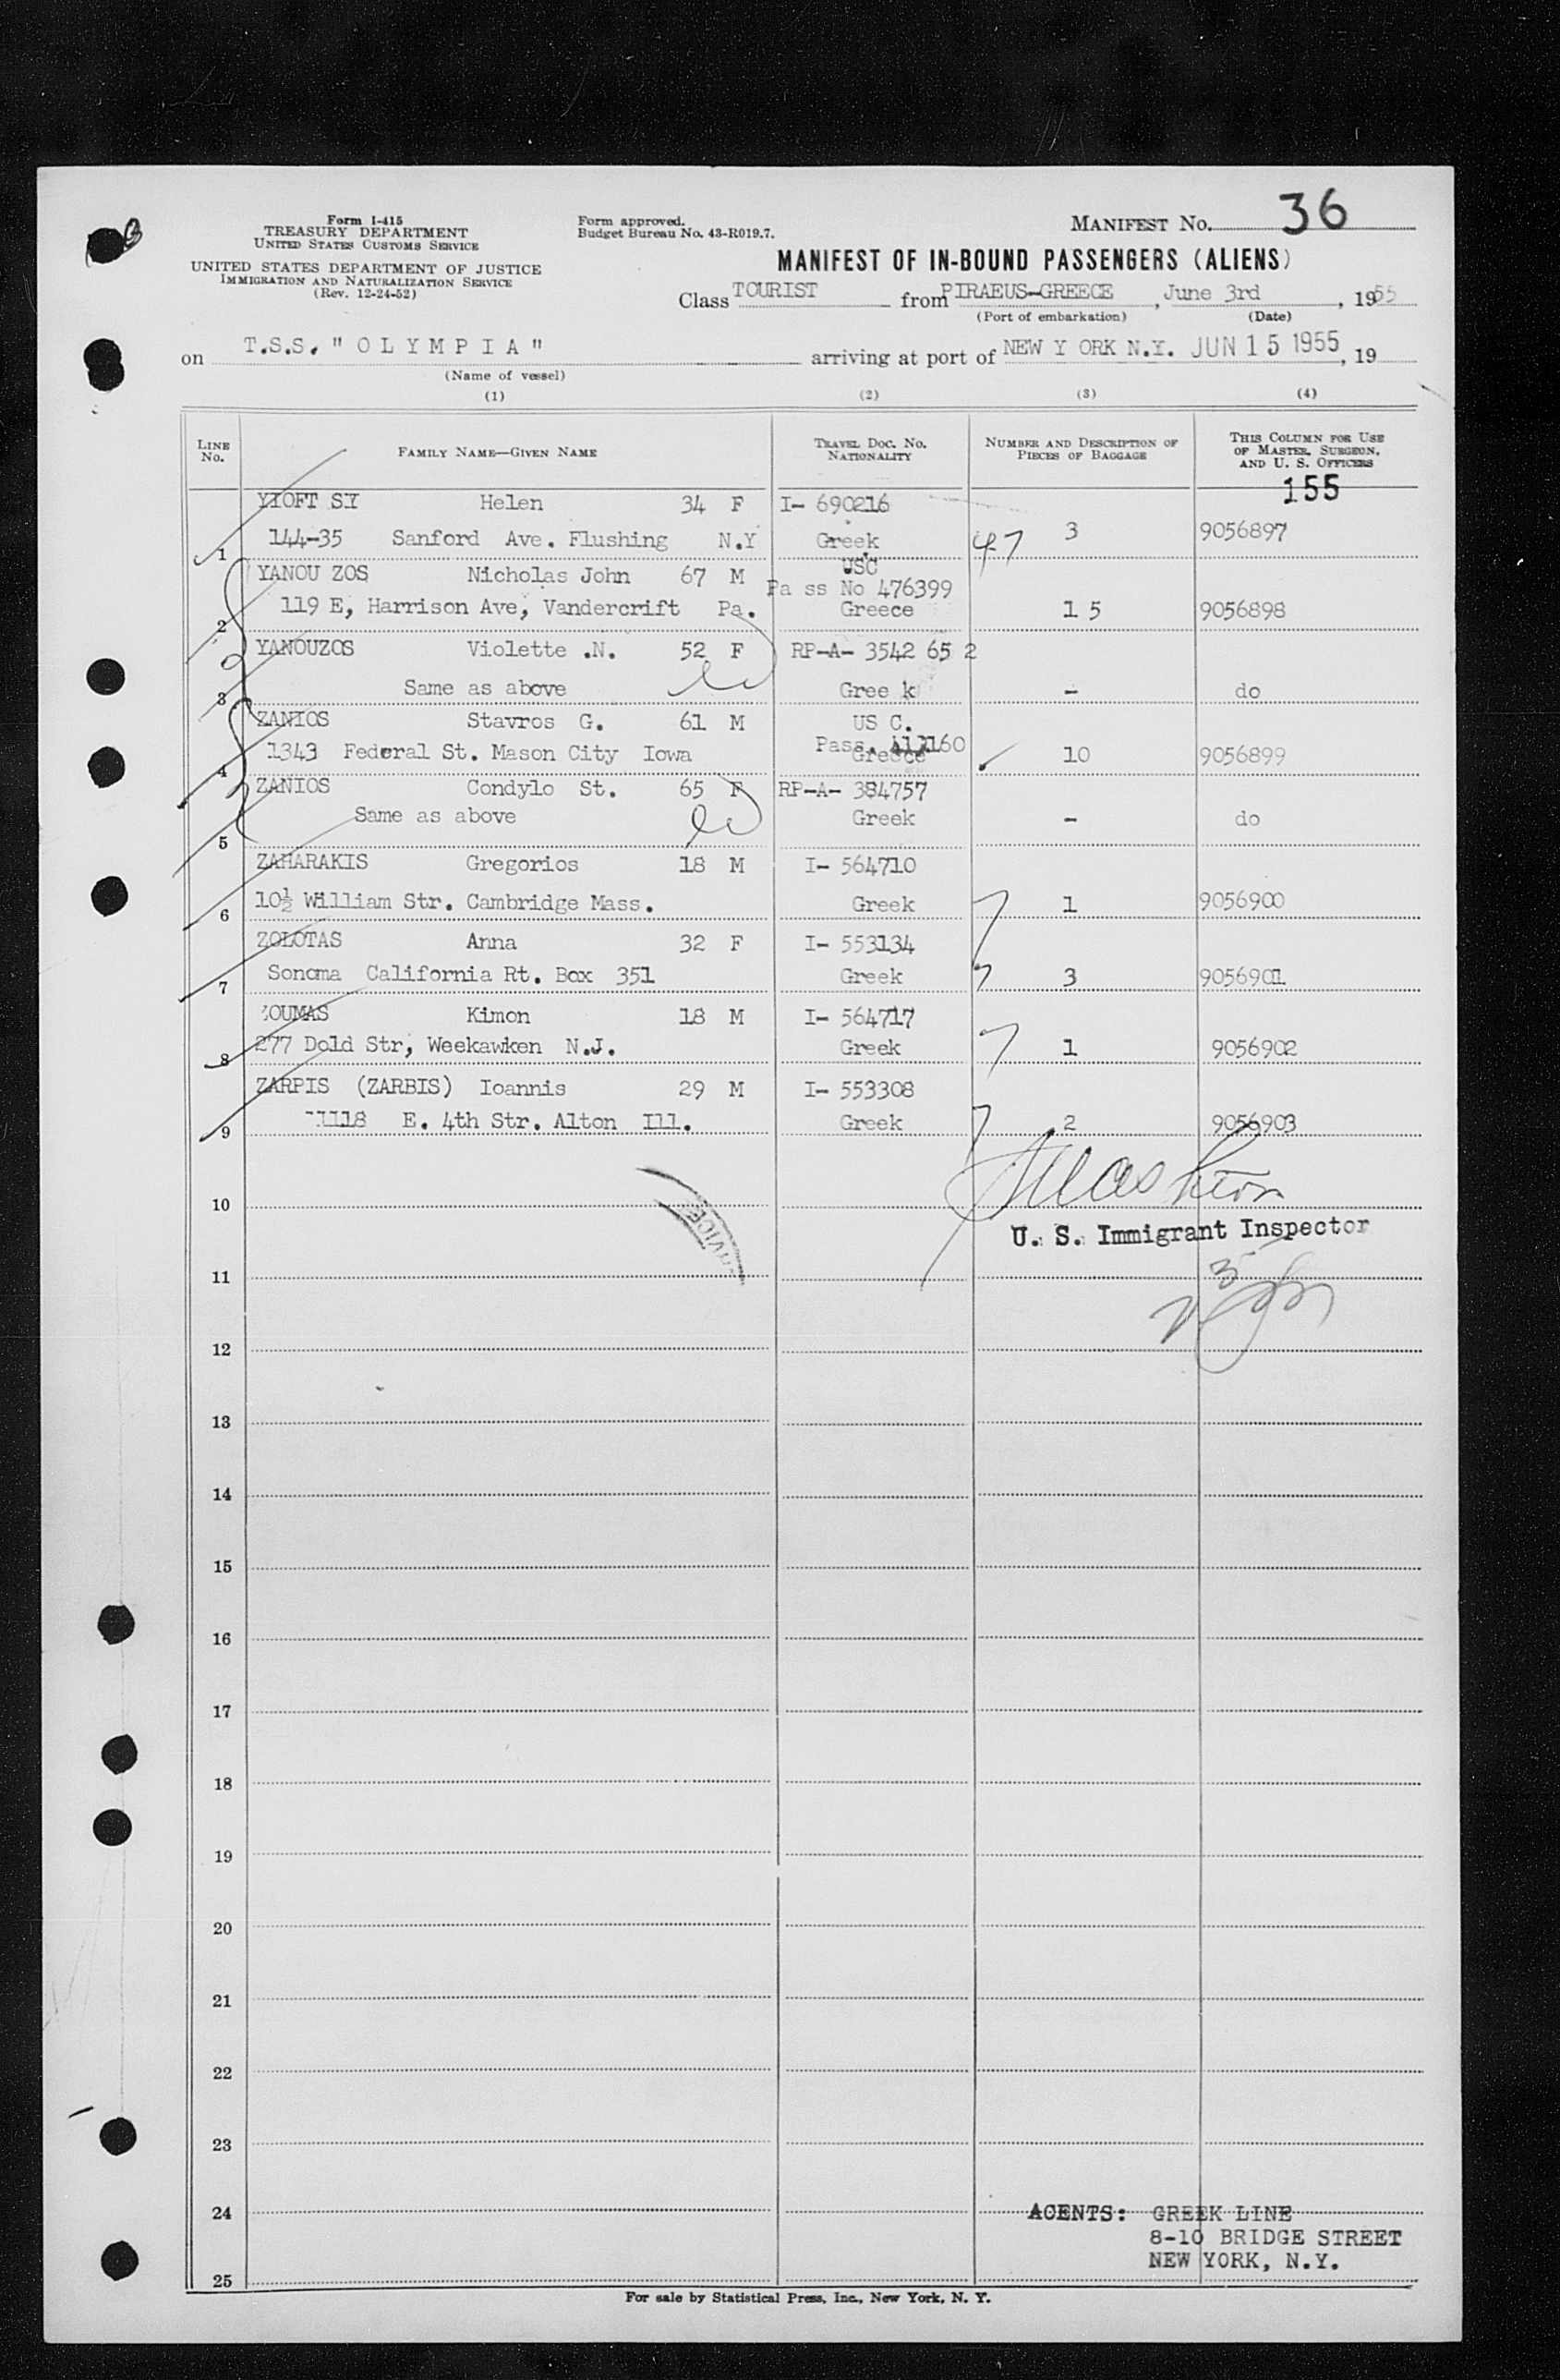 Form I-415
TREASURY DEPARTMENT
UNITED STATES CUSTOMS SERVICE
UNITED STATES DEPARTMENT OF JUSTICE
IMMIGRATION AND NATURALIZATION SERVICE
(Rev. 12-24-52)
Form approved.
Budget Bureau No. 43-R019.7.
MANIFEST No. 36
MANIFEST OF IN-BOUND PASSENGERS (ALIENS)
Class TOURIST from PIRAEUS-GREECE, June 3rd, 1955
(Port of embarkation) (Date)
on T.S.S. " O L Y M P I A " arriving at port of NEW Y ORK N.Y. JUN 15 1955, 19
(Name of vessel)
(1) (2) (3) (4)
LINE No. FAMILY NAME—GIVEN NAME TRAVEL DOC. No. NATIONALITY NUMBER AND DESCRIPTION OF PIECES OF BAGGAGE THIS COLUMN FOR USE OF MASTER, SURGEON, AND U. S. OFFICERS
155
YIOFT SI Helen 34 F I- 690216
1 144-35 Sanford Ave. Flushing N.Y Greek 47 3 9056897
YANOU ZOS Nicholas John 67 M USC
Pa ss No 476399
2 119 E, Harrison Ave, Vandercrift Pa. Greece 1 5 9056898
YANOUZOS Violette .N. 52 F RP-A- 3542 65 2
3 Same as above Gree k - do
ZANIOS Stavros G. 61 M US C.
4 1343 Federal St. Mason City Iowa Pass. Greece 10 9056899
ZANIOS Condylo St. 65 F RP-A- 384757
5 Same as above Greek - do
ZAHARAKIS Gregorios 18 M I- 564710
6 10½ William Str. Cambridge Mass. Greek 1 9056900
ZOLOTAS Anna 32 F I- 553134
7 Sonoma California Rt. Box 351 Greek 3 9056901
ZOUMAS Kimon 18 M I- 564717
8 277 Dold Str, Weekawken N.J. Greek 1 9056902
ZARPIS (ZARBIS) Ioannis 29 M I- 553308
9 1118 E. 4th Str. Alton Ill. Greek 2 9056903
10
U. S. Immigrant Inspector
11
12
13
14
15
16
17
18
19
20
21
22
23
24 AGENTS: GREEK LINE
8-10 BRIDGE STREET
NEW YORK, N.Y.
25
For sale by Statistical Press, Inc., New York, N. Y.